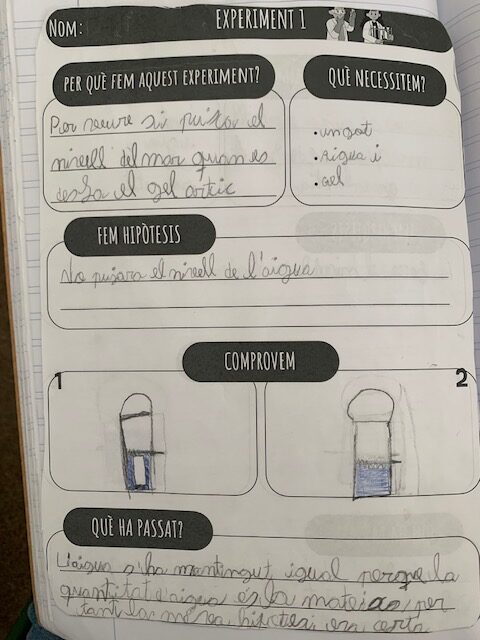 Nom:
EXPERIMENT 1
PER QUÈ FEM AQUEST EXPERIMENT?
Per veure si puja el
nivell del mar quan es
desfa el gel artic
QUÈ NECESSITEM?
• un got
• Aigua i
• Gel
FEM HIPÒTESIS
No pujara el nivell de l'aigua
COMPROVEM
1
2
QUÈ HA PASSAT?
L'aigua s'ha mantingut igual perque la
quantitat d'aigua es la mateixa per
tant la meva hipotesi era certa